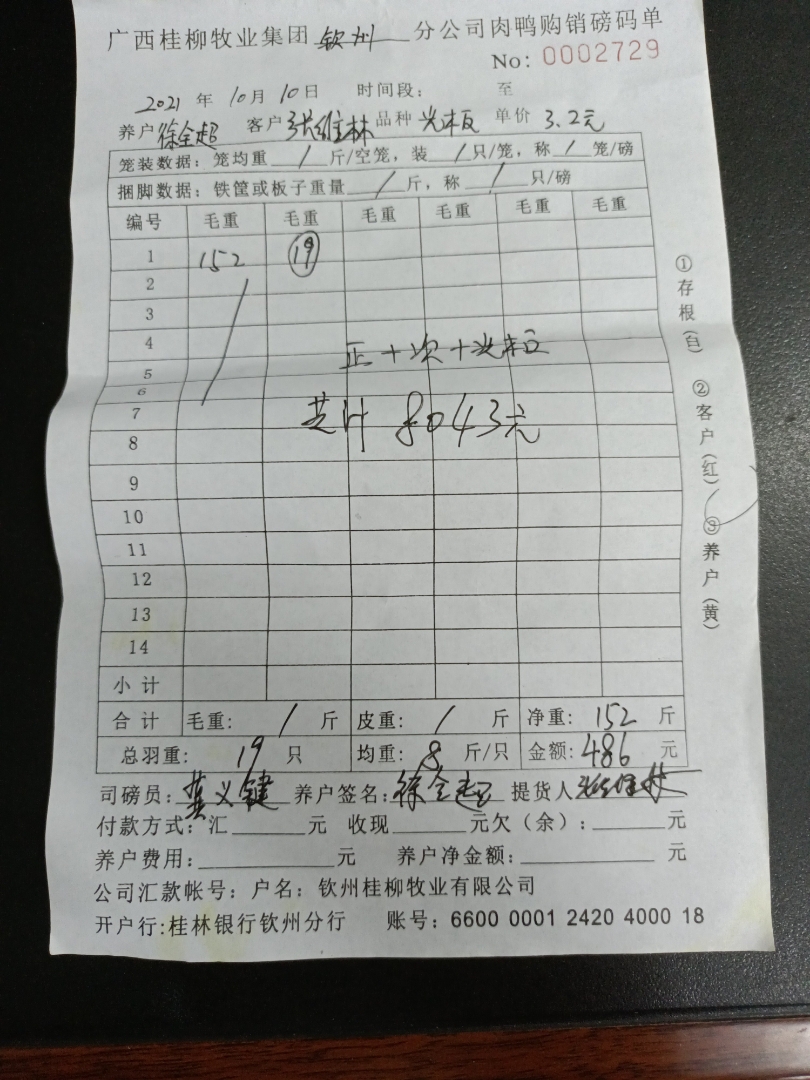 广西桂柳牧业集团 钦州 分公司肉鸭购销磅码单
No: 0002729
2021 年 10 月 10 日 时间段: 至
养户 徐全超 客户 张维林 品种 光板 单价 3.2元
笼装数据: 笼均重 / 斤/空笼, 装 / 只/笼, 称 / 笼/磅
捆脚数据: 铁筐或板子重量 / 斤, 称 / 只/磅
编号 毛重 毛重 毛重 毛重 毛重 毛重
1 152 19
2
3
4
正+次+光板
5
6
7
共计 8043元
8
9
10
11
12
13
14
小计
合计 毛重: / 斤 皮重: / 斤 净重: 152 斤
总羽重: 19 只 均重: 8 斤/只 金额: 486 元
司磅员: 龚义键 养户签名: 徐全超 提货人 张维林
付款方式: 汇 元 收现 元欠(余): 元
养户费用: 元 养户净金额: 元
公司汇款帐号: 户名: 钦州桂柳牧业有限公司
开户行:桂林银行钦州分行 账号: 6600 0001 2420 4000 18
①存根(白) ②客户(红) ③养户(黄)